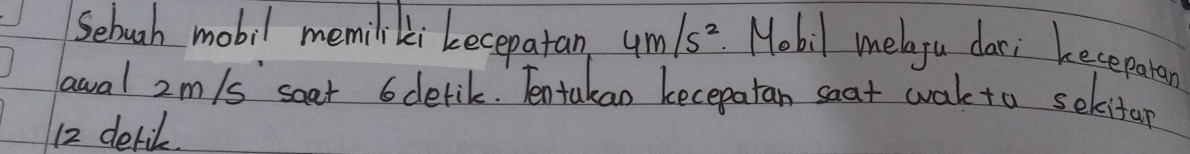 Sebuah mobil memiliki kecepatan 4m/s². Mobil melaju dari kecepatan
awal 2m/s saat 6 detik. Tentukan kecepatan saat waktu sekitar
12 detik.